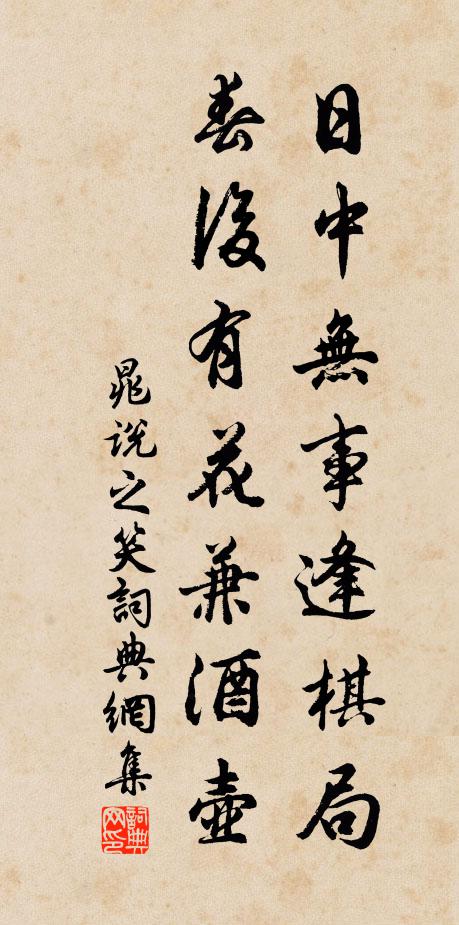 日中無事逢棋局
春後有花兼酒壺
晁說之笑詞典網集
詞典网印